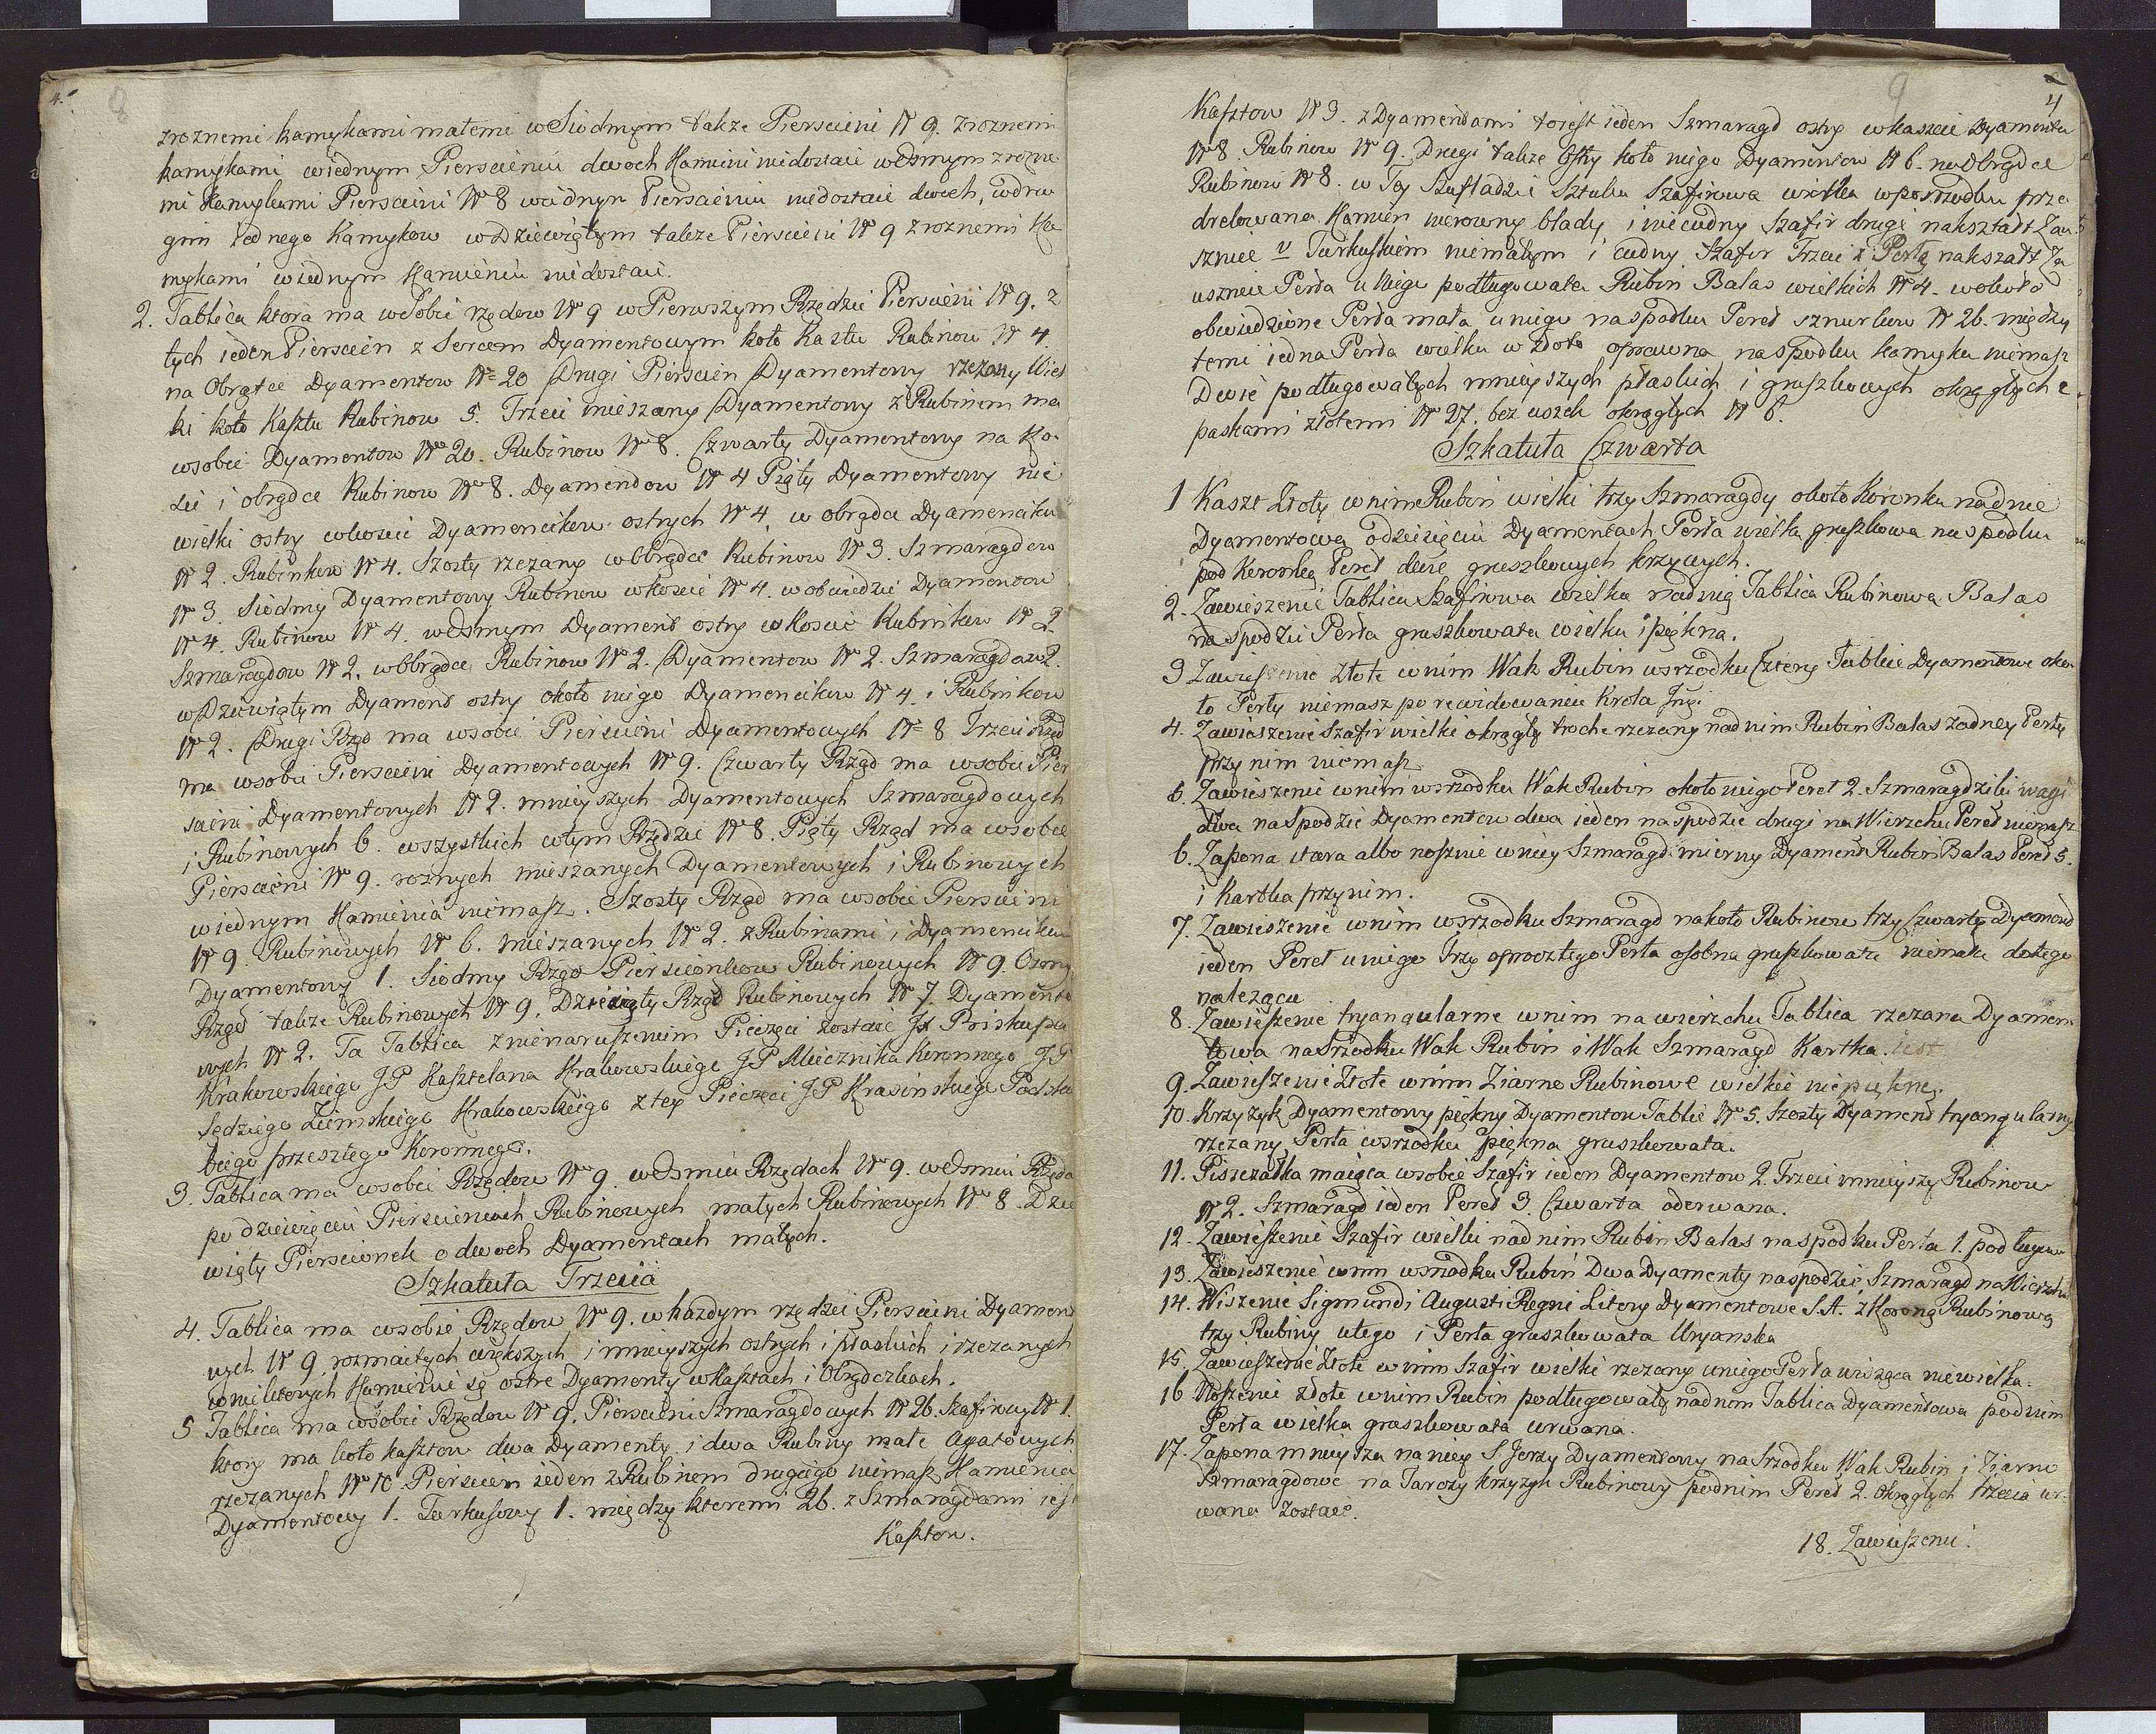 4.
8
zroznemi kamykami małemi w Siodmym także Pierscieni N 9. z roznemi
kamykami w iednym Pierscieniu dwoch Kamieni niedostaie w osmym z rozne
mi Kamykami Pierscieni N 8 w iednym Pierscieniu niedostaie dwoch, w dru
gim iednego Kamykow w Dziewiątym także Pierscieni N 9 z roznemi Ka
mykami w iednym Kamieniu niedostaie.
2. Tablica ktora ma w Sobie rzędow N 9 w Pierwszym Rzędzie Pierscieni N 9. z
tych ieden Pierscien z Sercem Dyamentowym koło Kasztu Rubinow N 4.
na Obrątce Dyamentow N 20 Drugi Pierscien Dyamentowy rzezany Wiel
ki koło Kasztu Rubinow 5. Trzeci mieszany Dyamentowy z Rubinem ma
w sobie Dyamentow N 20. Rubinow N 8. Czwarty Dyamentowy na Ko
sci i obrądce Rubinow N 8. Dyamendow N 4 Piąty Dyamentowy nie
wielki ostry w kosci Dyamencikow ostrych N 4. w obrądce Dyamenciku
N 2. Rubinkow N 4. Szosty rzezany w obrądce Rubinow N 3. Szmaragdow
N 3. Siodmy Dyamentowy Rubinow w kosci N 4. w obwiedzie Dyamentow
N 4. Rubinow N 4. w Osmym Dyament ostry w Koscie Rubinikow N 2
Szmaragdow N 2. w Obrądce Rubinow N 2. Dyamentow N 2. Szmaragdow 2.
w Dziewiątym Dyamend ostry około niego Dyamencikow N 4. i Rubinikow
N 2. Drugi Rząd ma w sobie Pierscieni Dyamentowych N 8 Trzeci Rząd
ma w sobie Pierscieni Dyamentowych N 9. Czwarty Rząd ma w sobie Pier
scieni Dyamentowych N 2. mnieyszych Dyamentowych Szmaragdowych
i Rubinowych 6. wszystkich w tym Rzędzie N 8. Piąty Rząd ma w sobie
Pierscieni N 9. roznych mieszanych Dyamentowych i Rubinowych
w iednym Kamienia niemasz. Szosty Rząd ma w sobie Pierscieni
N 9. Rubinowych N 6. mieszanych N 2. z Rubinami i Dyamenciku
Dyamentowy 1. Siodmy Rząd Pierscionkow Rubinowych N 9. Osmy
Rząd także Rubinowych N 9. Dziewiąty Rząd Rubinowych N 7. Dyamento
wych N 2. Ta Tablica z nienaruszeniem Pieczęci zostaie Jx Priskupa
Krakowskiego JP Kasztelana Krakowskiego JP Miecznika Koronnego JP
Sędziego Ziemskiego Krakowskiego z tey Pieczęci JP Krasinskiego Podska
biego przeszłego Koronnego.
3. Tablica ma w sobie Rzędow N 9. w Osmiu Rzędach N 9. w Osmiu Rzęda
po dziewięciu Pierscieniach Rubinowych małych Rubinowych N 8. Dzie
wiąty Pierscionek o dwoch Dyamentach małych.
Szkatuła Trzecia
4. Tablica ma w sobie Rzędow N 9. w każdym rzędzie Pierscieni Dyamen
wych N 9 rozmaitych większych i mnieyszych ostrych i płaskich i rzezanych
w niektorych Kamieni są ostre Dyamenty w Kasztach i Obrądczkach.
5 Tablica ma w sobie Rzędow N 9. Pierscieni Szmaragdowych N 26. Szafirowy N 1.
ktory ma koło kasztow dwa Dyamenty i dwa Rubiny małe Agatowych
rzezanych N 10 Pierscien ieden z Rubinem drugiego niemasz Kamienia
Dyamentowy 1. Turkusowy 1. między ktoremi 26. z Szmaragdami iest
Kasztow.
9
4
Kasztow N 3. z Dyamendami to iest ieden Szmaragd ostry w kaszcie Dyamentu
N 8 Rubinow N 9. Drugi także Ostry koło niego Dyamentow N 6. na Obrądce
Rubinow N 8. w Tey Szufladzie Sztuka Szafirowa wielka w posrzodku prze
drelowana Kamien nierowny blady i niecudny Szafir drugi nakształt Zau
sznic u Turkuskiem niemałym i cudny Szafir Trzeci z Perłą nakształt Za
usznice Perła u Niego podługowata Rubin Balas wielkich N 4. wokoło
obwiedzione Perła mała u niego na spodku Pereł sznurkow N 26. między
temi iedna Perła wielka w złoto oprawna na spodku kamyka niemasz
Dwie podługowatych mnieyszych płaskich i gruszkowych okrągłych z
paskami złotemi N 27. bez uszek okrągłych N 6.
Szkatuła Czwarta
1 Kaszt Złoty w nim Rubin wielki trzy Szmaragdy około Koronka na dnie
Dyamentowa o dziesięciu Dyamentach Perła wielka gruszkowa na spodku
pod Koronką Pereł dwie gruszkowych krzywych.
2. Zawieszenie Tablica Szafirowa wielka nad nią Tablica Rubinowa Balas
na spodzie Perła gruszkowata wielka i piękna.
3 Zawieszenie Złote w nim Wak Rubin w srzodku Cztery Tablice Dyamentowe oko
to Perły niemasz po rewidowaniu Krola Jmci.
4. Zawieszenie Szafir wielki okrągły troche rzezany nad nim Rubin Balas żadney Perły
przy nim niemasz
6. Zawieszenie w nim w srzodku Wak Rubin około niego Pereł 2. Szmaragdziki wagi
dwa na Spodzie Dyamentow dwa ieden na spodzie drugi na Wierzchu Pereł niemasz
6. Zapona stara albo noszenie w niey Szmaragd mierny Dyament Rubin Balas Pereł 5.
i Kartka przy nim.
7. Zawieszenie w nim w srzodku Szmaragd na koło Rubinow trzy Czwarty Dyamend
ieden Pereł u niego Trzy oprocz tego Perła osobna gruszkowata niemała do tego
należąca
8. Zawieszenie tryangularne w nim na wierzchu Tablica rzezana Dyamen
towa na Srzodku Wak Rubin i Wak Szmaragd Kartka iest
9. Zawieszenie Złote w nim Ziarno Rubinowe wielkie niepiękne.
10. Krzyżyk Dyamentowy piękny Dyamentow Tablic N 5. Szosty Dyamend tryangularny
rzezany Perła w srzodku piękna gruszkowata.
11. Piszczałka maiąca w sobie Szafir ieden Dyamentow 2. Trzeci mnieyszy Rubinow
N 2. Szmaragd ieden Pereł 3. Czwarta oderwana.
12. Zawieszenie Szafir wielki nad nim Rubin Balas na spodku Perła 1. podługow
13. Zawieszenie w nim w srzodku Rubin Dwa Dyamenty na spodzie Szmaragd na Wierzchu
14. Wiszenie Sigmundi Augusti Regni Litery Dyamentowe S.A. z Koroną Rubinową
trzy Rubiny u tego i Perła gruszkowata Uryanska
15. Zawieszenie Złote w nim Szafir wielki rzezany u niego Perła wisząca niewielka.
16 Noszenie złote w nim Rubin podługowaty nad nim Tablica Dyamentowa pod nim
Perła wielka gruszkowata urwana.
17. Zapona mnieysza na niey S Jerzy Dyamentowy na Srzodku Wak Rubin i Ziarno
Szmaragdowe na Tarczy krzyżyk Rubinowy pod nim Pereł 2. Okrągłych trzecia ur
wana zostaie.
18. Zawieszeni